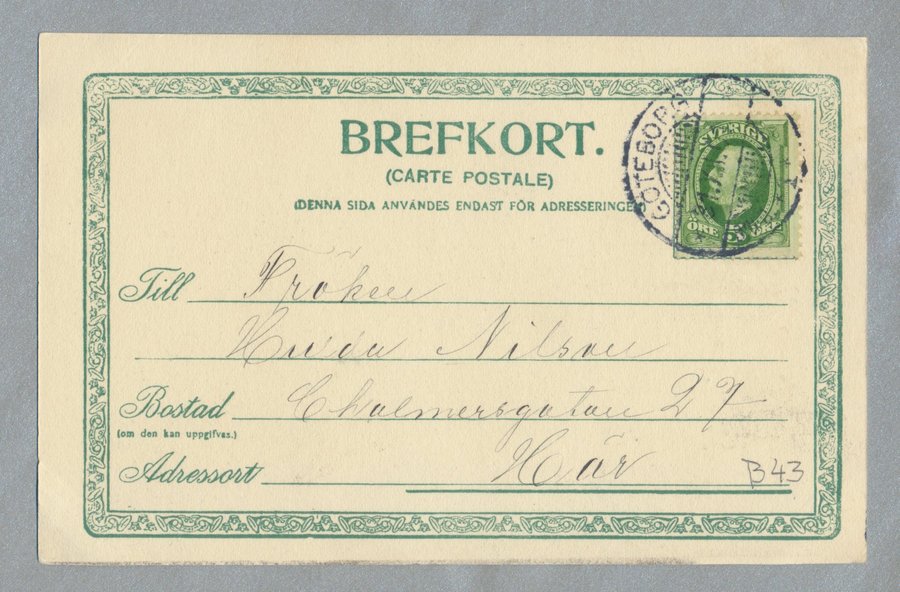 BREFKORT.
(CARTE POSTALE)
(DENNA SIDA ANVÄNDES ENDAST FÖR ADRESSERINGE
GÖTEBORG
SVERIGE
ÖRE 5 ÖRE
Till Fröken
Hulda Nilson
Bostad Chalmersgatan 27
(om den kan uppgifvas.)
Adressort Här
B43